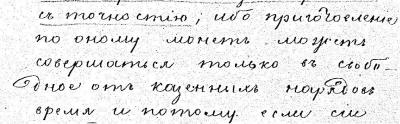 съ точностію; ибо приготовленіе
по оному монетъ могутъ
совершаться только въ свобо-
дное отъ казенныхъ нарядовъ
время и потому если сіи